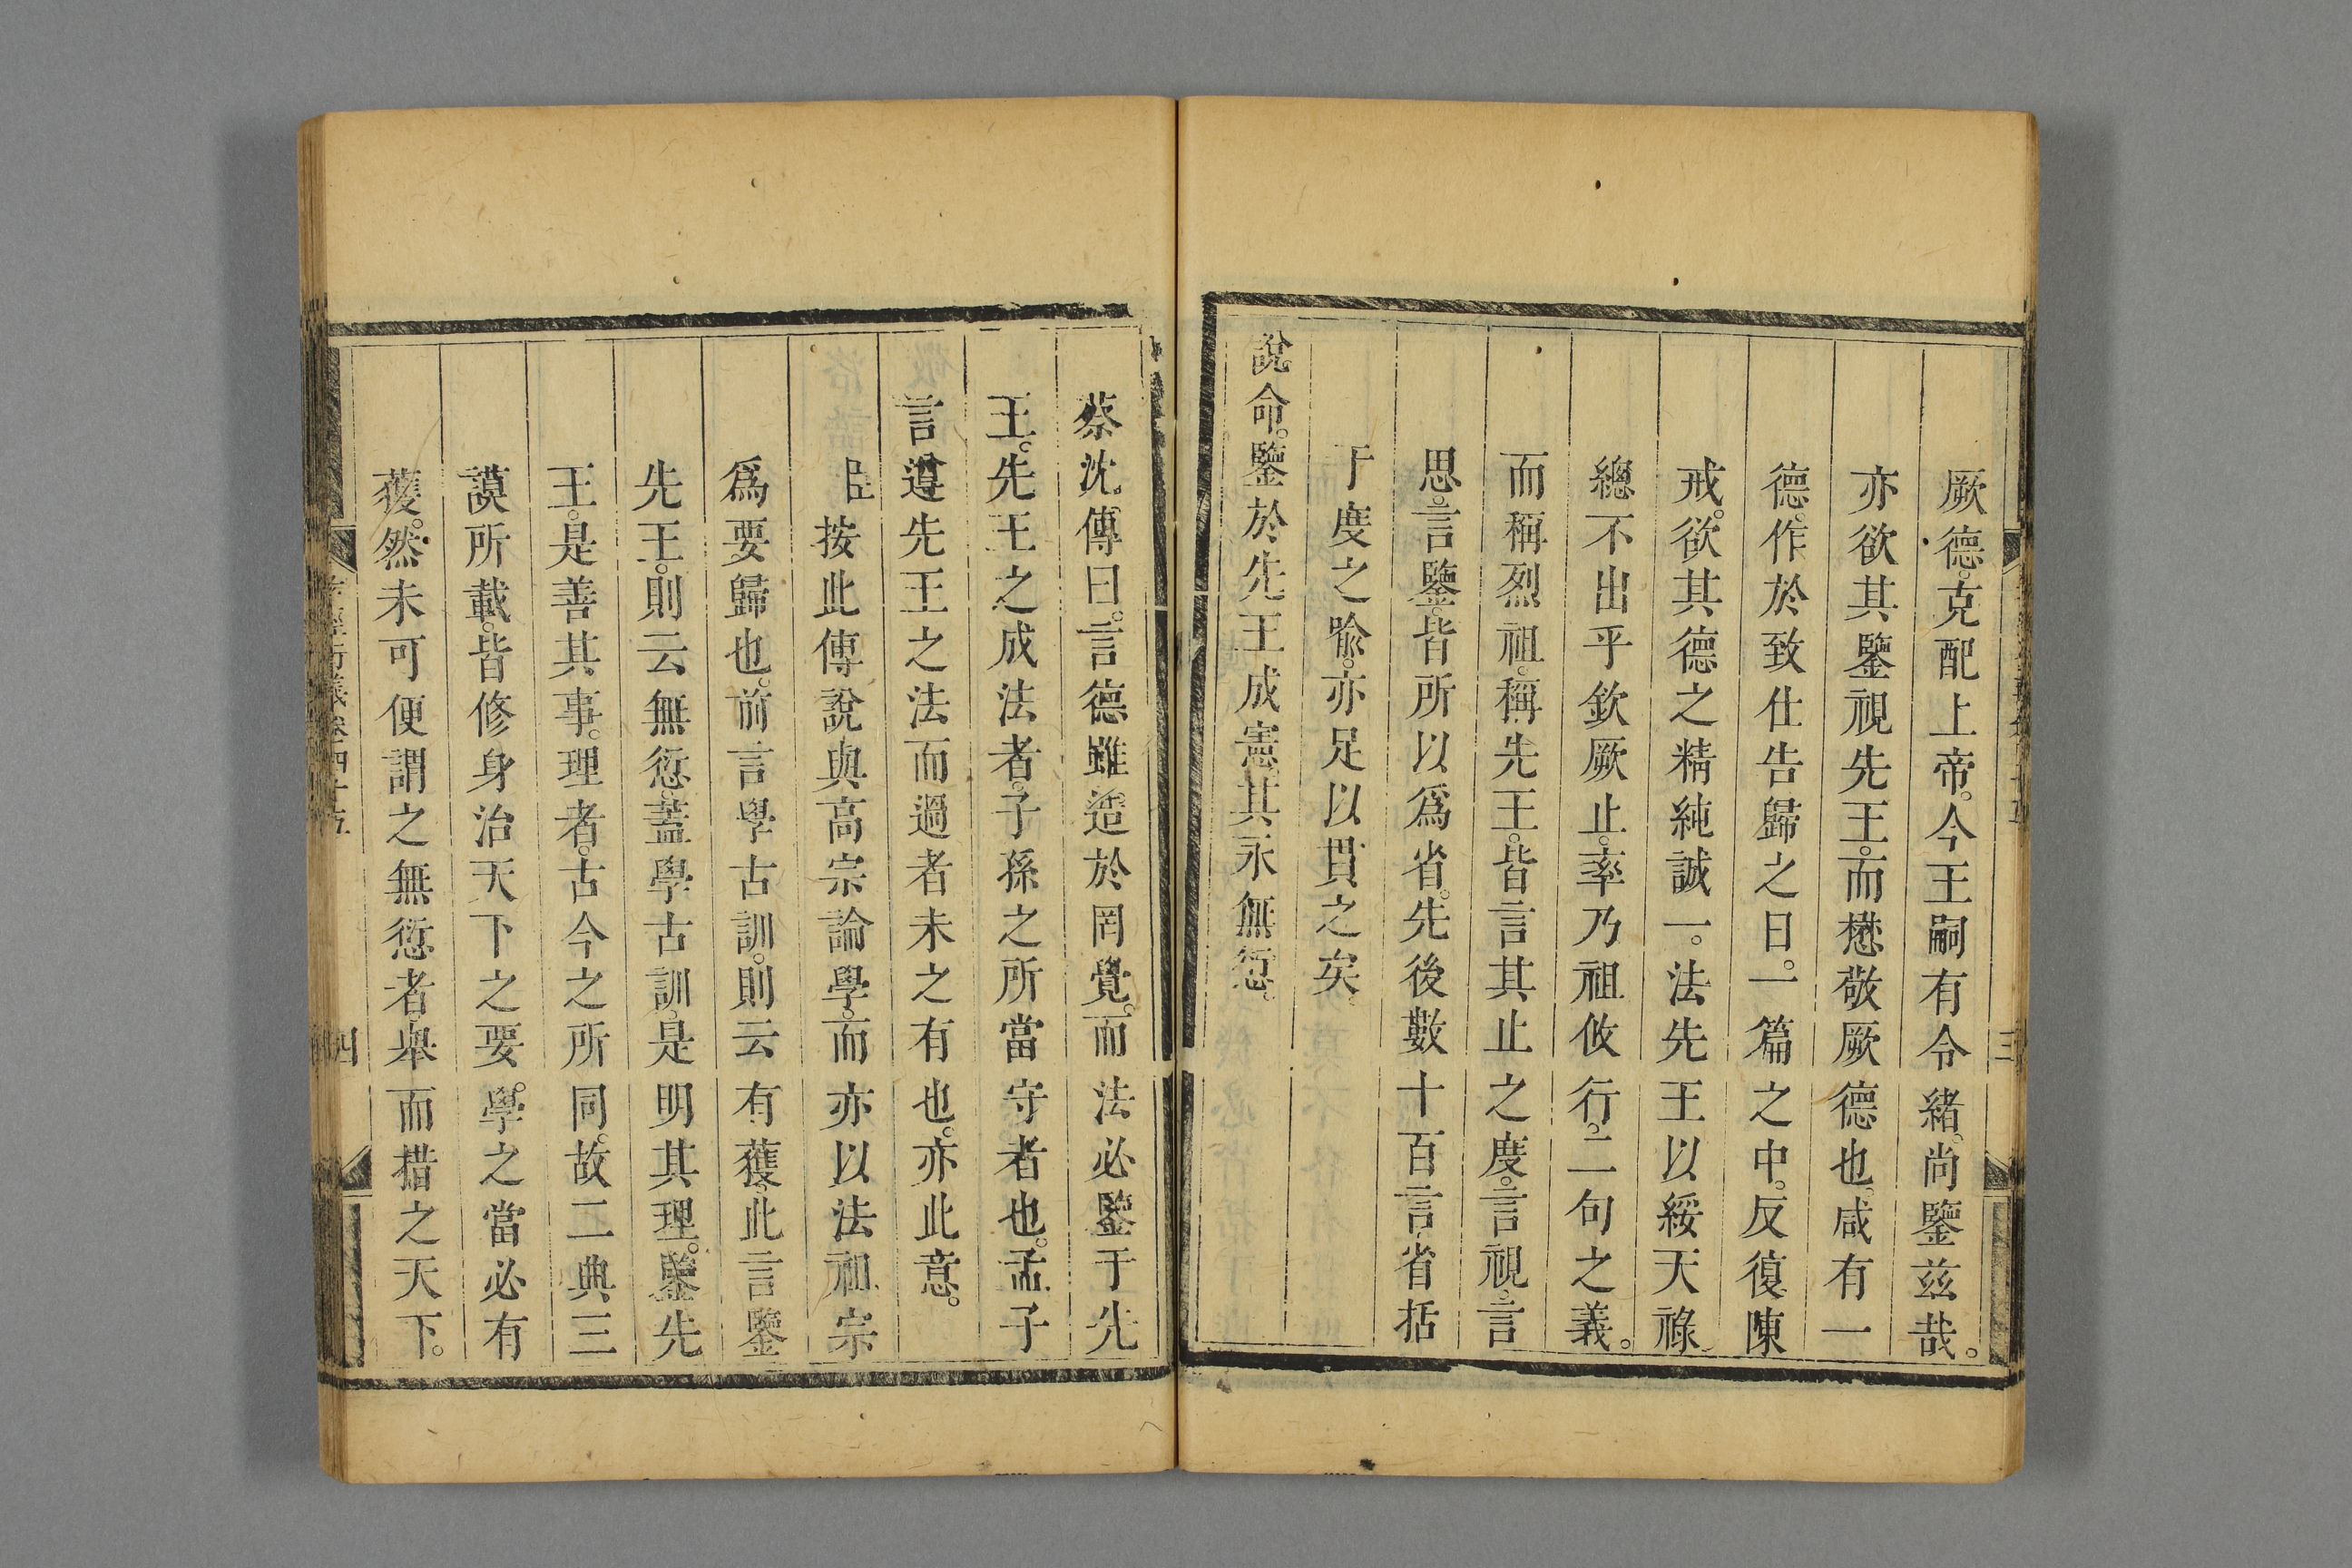 厥德。克配上帝。今王嗣有令緒。尚鑒茲哉。
亦欲其鑒視先王。而懋敬厥德也。咸有一
德。作於致仕告歸之日。一篇之中。反復陳
戒。欲其德之精純誠一。法先王以綏天祿
總不出乎欽厥止。率乃祖攸行。二句之義。
而稱烈祖。稱先王。皆言其止之度。言視。言
思。言鑒。皆所以爲省。先後數十百言。省括
于度之喩。亦足以貫之矣。
說命。鑒於先王成憲。其永無愆。
蔡沈。傳曰。言德雖造於罔覺。而法必鑒于先
王。先王之成法者。子孫之所當守者也。孟子
言遵先王之法而過者未之有也。亦此意。
臣按此傳說與高宗論學。而亦以法祖宗
爲要歸也。前言學古訓。則云有獲。此言鑒
先王。則云無愆。蓋學古訓。是明其理。鑒先
王。是善其事。理者。古今之所同。故二典三
謨所載。皆修身治天下之要。學之當必有
獲。然未可便謂之無愆者。舉而措之天下。
衍義卷四十五
四